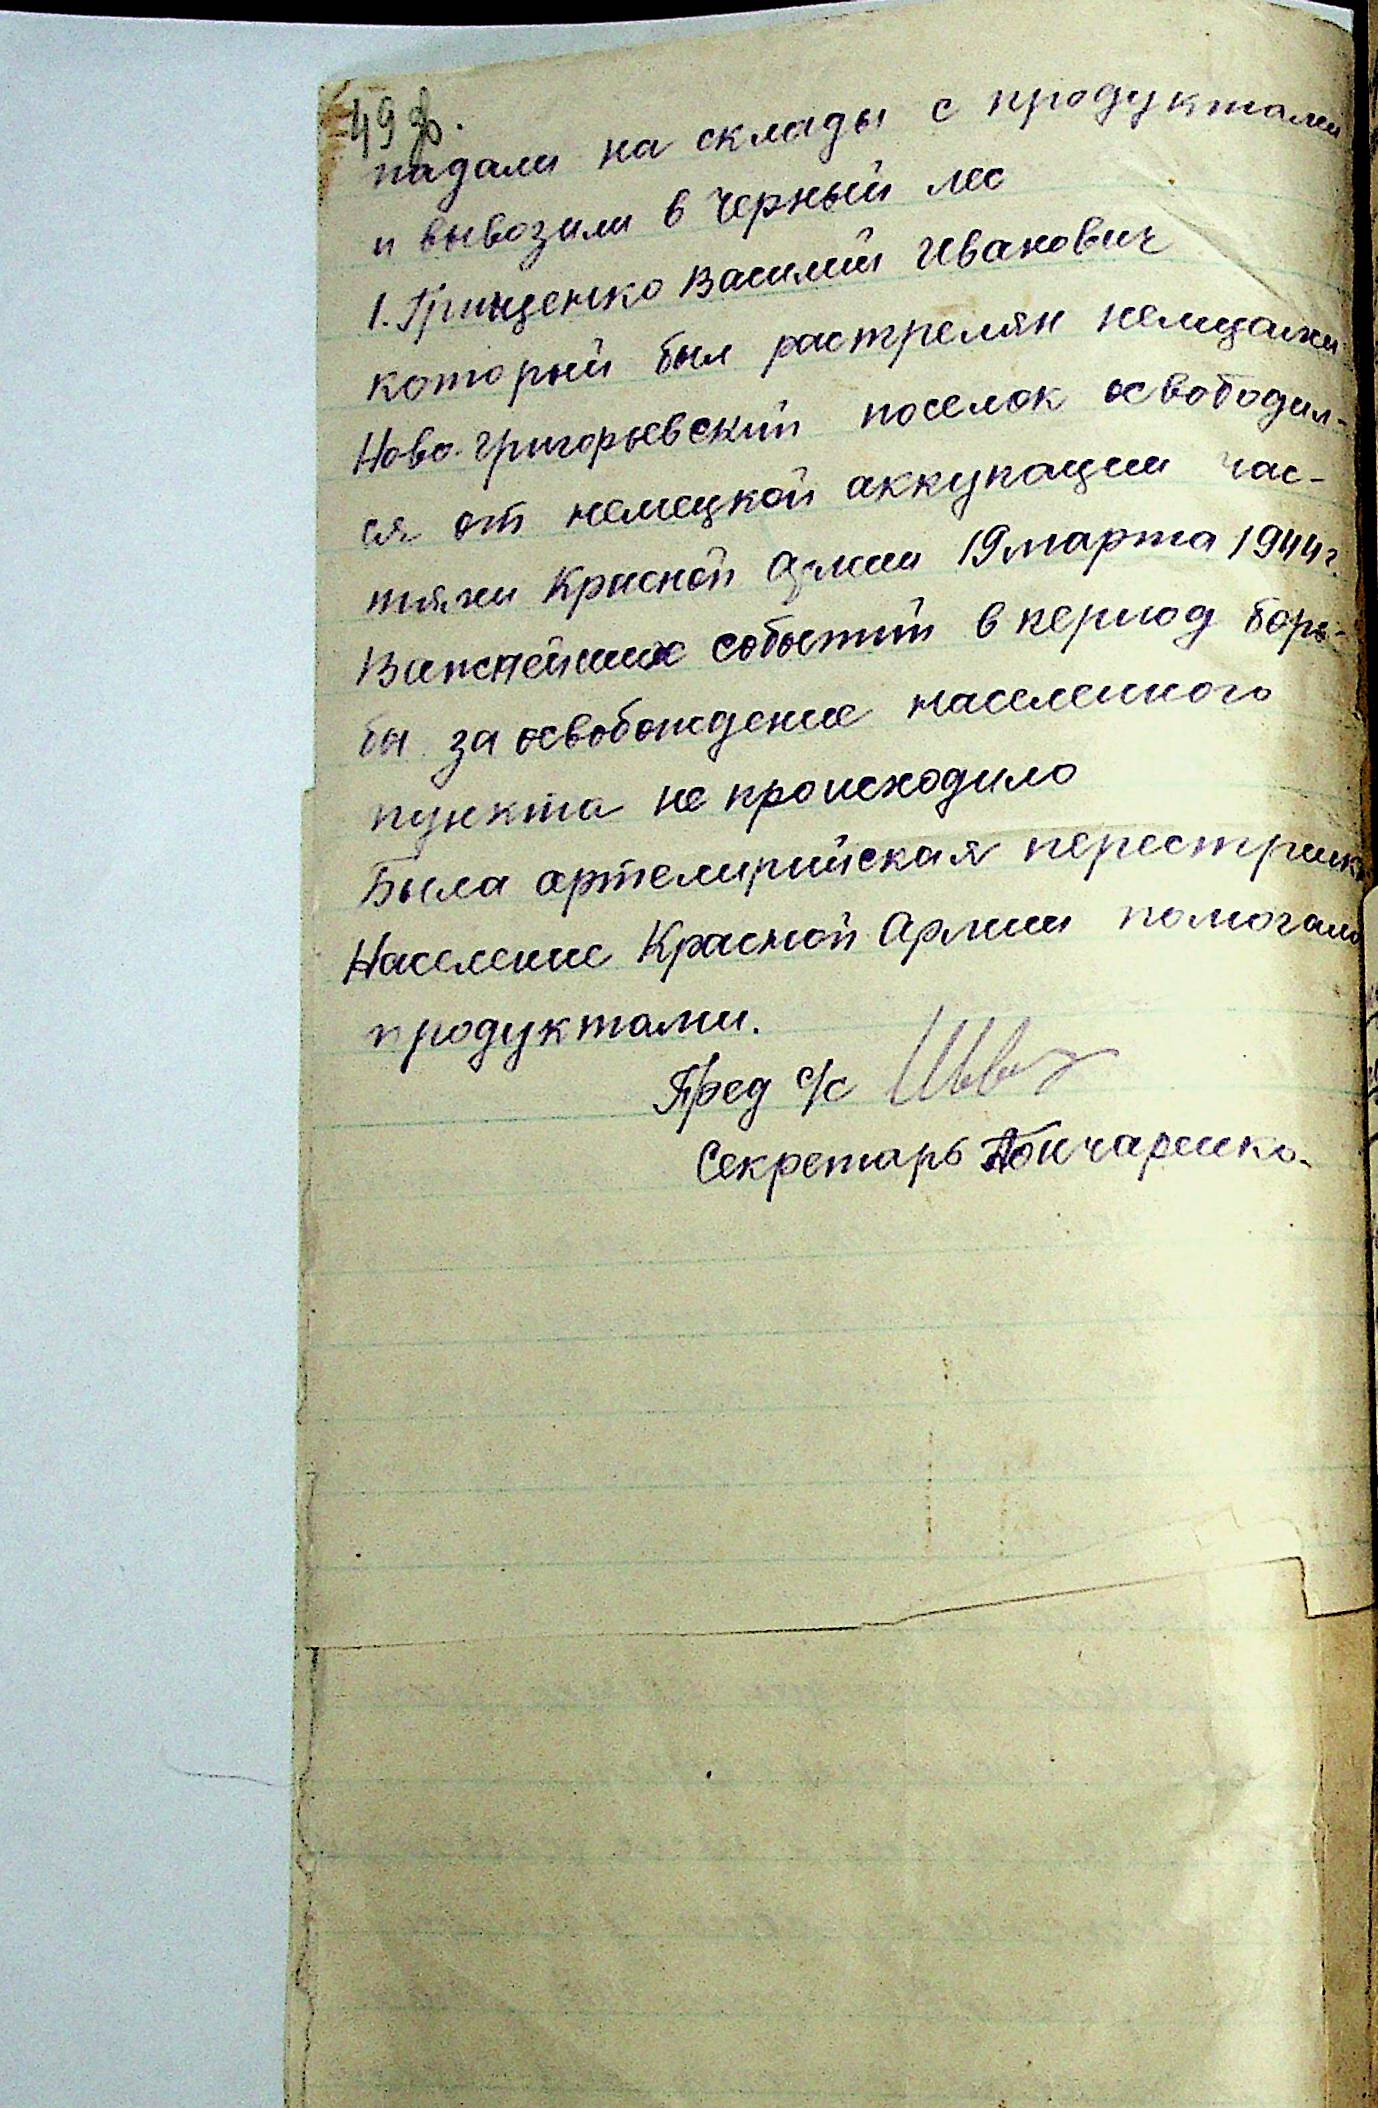 49 об.
падали на склады с продуктами
и вывозили в Черный лес
1. Грищенко Василий Иванович
который был растрелян немцами
Ново-григорьевский поселок освободил-
ся от немецкой аккупации час-
тями Красной Армии 19 марта 1944 г.
Важнейших событий в период борь-
бы за освобождение населенного
пункта не происходило
Была артелирийская перестрилка
Население Красной Армии помогало
продуктами.
Пред с/с
Секретарь Гончаренко.